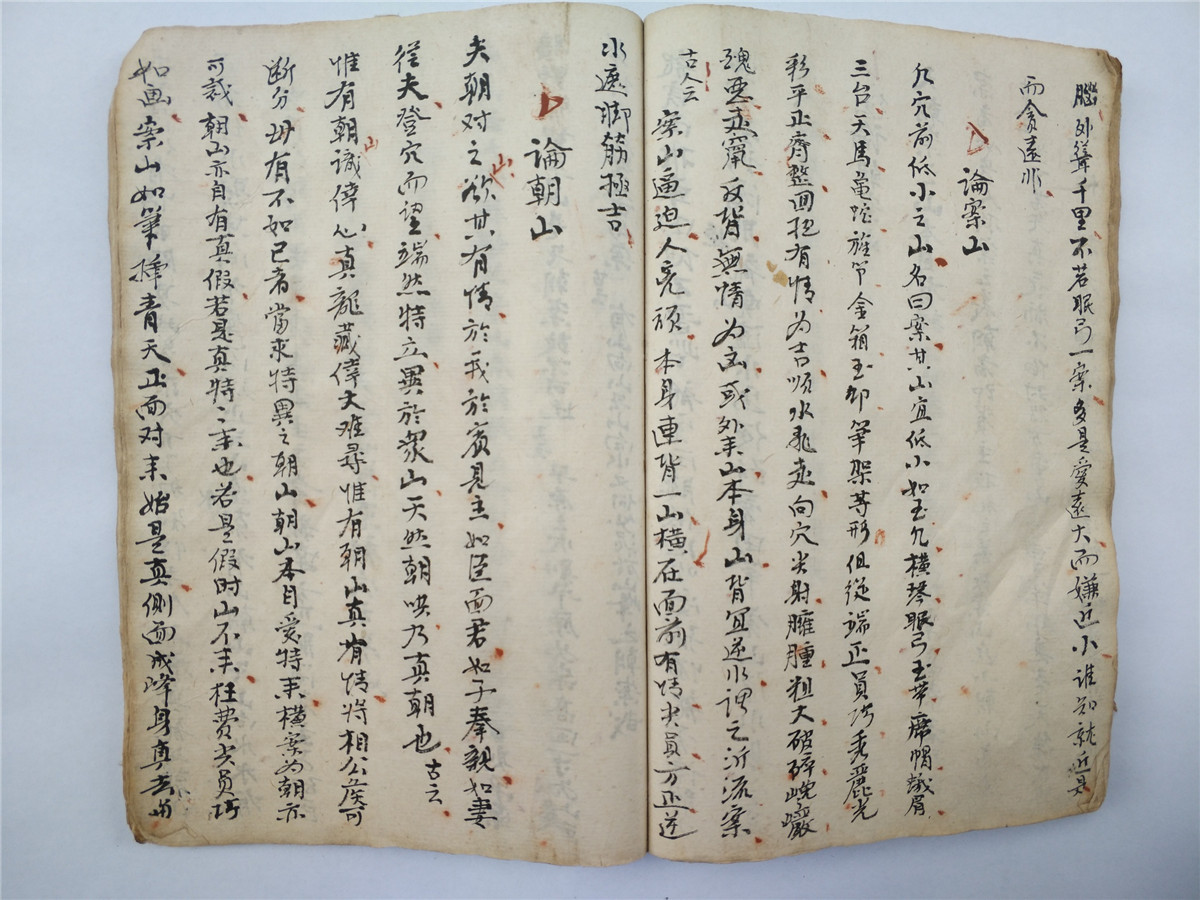 腦外聳千里不若眠弓一案多是愛遠大而嫌近小誰知就近是
而貪遠非
論案山
凡穴前低小之山名曰案其山宜低小如玉几橫琴眠弓玉帶席帽誐眉
三台天馬亀蛇旌節金箱玉印筆架等形但從端正員巧秀麗光
彩平正齊整回抱有情為吉順水飛走向穴尖射臃腫粗大破碎巉巖
醜惡走竄反背無情為凶或外来山本身山皆宜逆水謂之沂流案
古人云
案山逼迫人兇頑本身連皆一山橫在面前有情尖員方正逆
水遮脚筋極吉
論朝山
夫朝山对之欲其有情於我於賓見主如臣面君如子奉親如妻
從夫登穴而望端然特立異於衆山天然朝哄乃真朝也古云
惟有朝山識倖心真龍藏倖大难尋惟有朝山真有情将相公侯可
断分毋有不如已者當求特異之朝山朝山本目愛特来橫案為朝亦
可裁朝山亦自有真假若是真特二来也若是假时山不来枉費尖員巧
如画案山如筆揷青天正面对来始是真側面成峰身真去